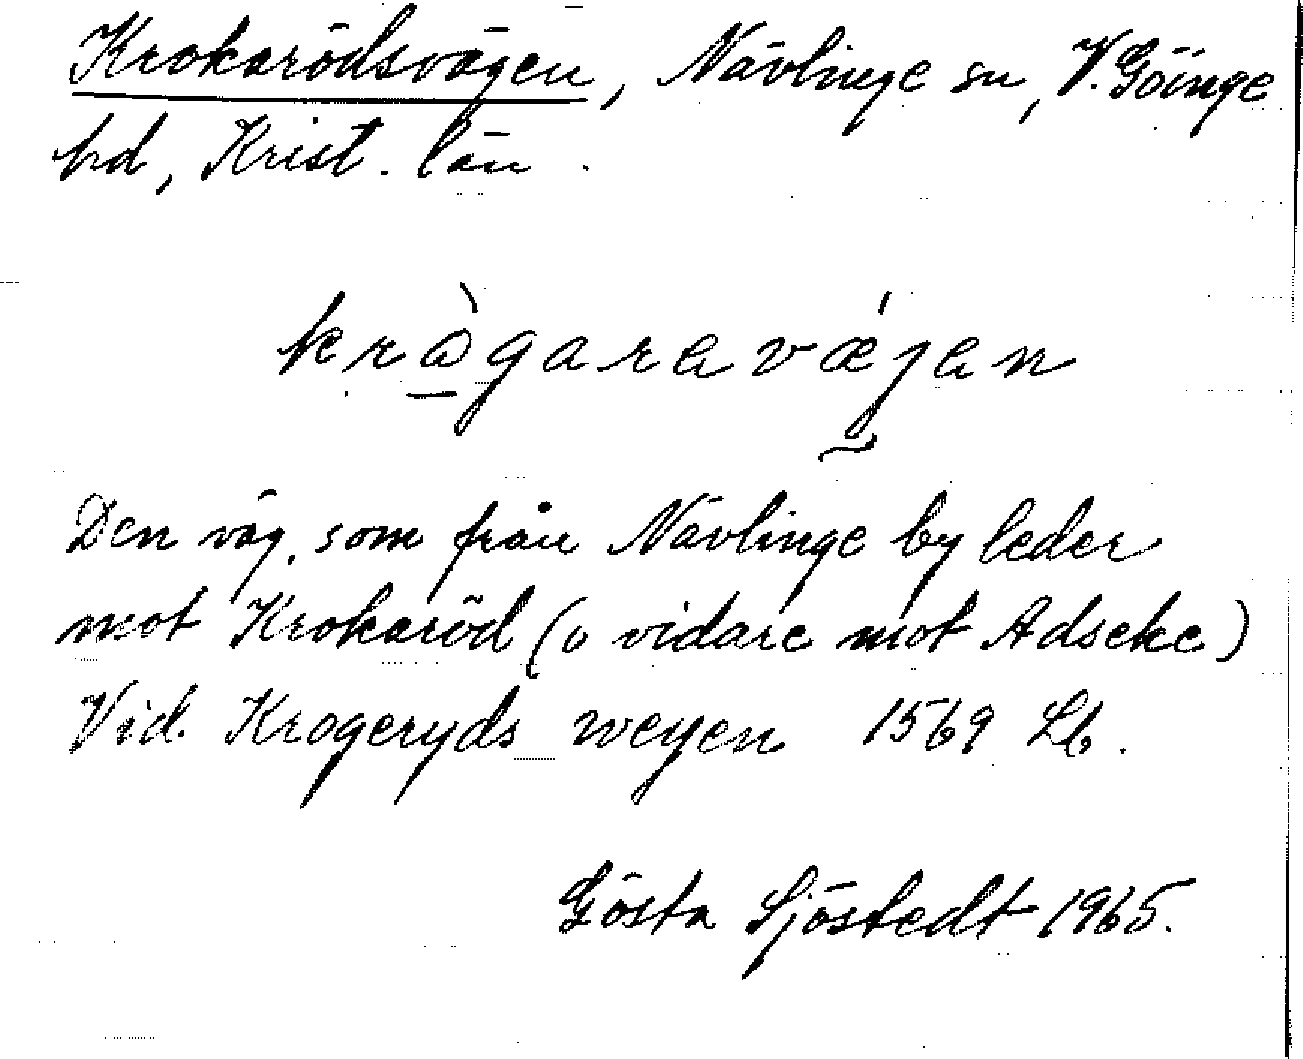 Krokarödsvägen, Nävlinge sn, V. Göinge
hd, Krist. län.
krå̀garavǽjen
Den väg, som från Nävlinge by leder
mot Krokaröd (o vidare mot Adseke)
Vid. Krogeryds weyen 1569 Lb.
Gösta Sjöstedt 1965.